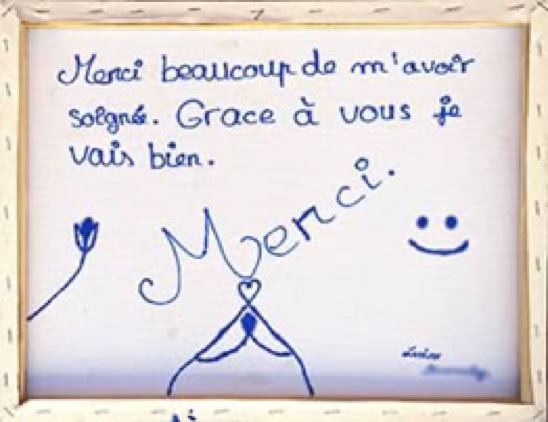 Merci beaucoup de m'avoir
soigné. Grace à vous je
vais bien.
Merci.